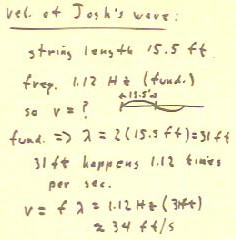 vel. of Josh's wave:
string length 15.5 ft
freq. 1.12 Hz (fund.)
←15.5'→
so v = ?
fund. => λ = 2(15.5 ft) = 31 ft
31 ft happens 1.12 times
per sec.
v = f λ = 1.12 Hz (31 ft)
≈ 34 ft/s